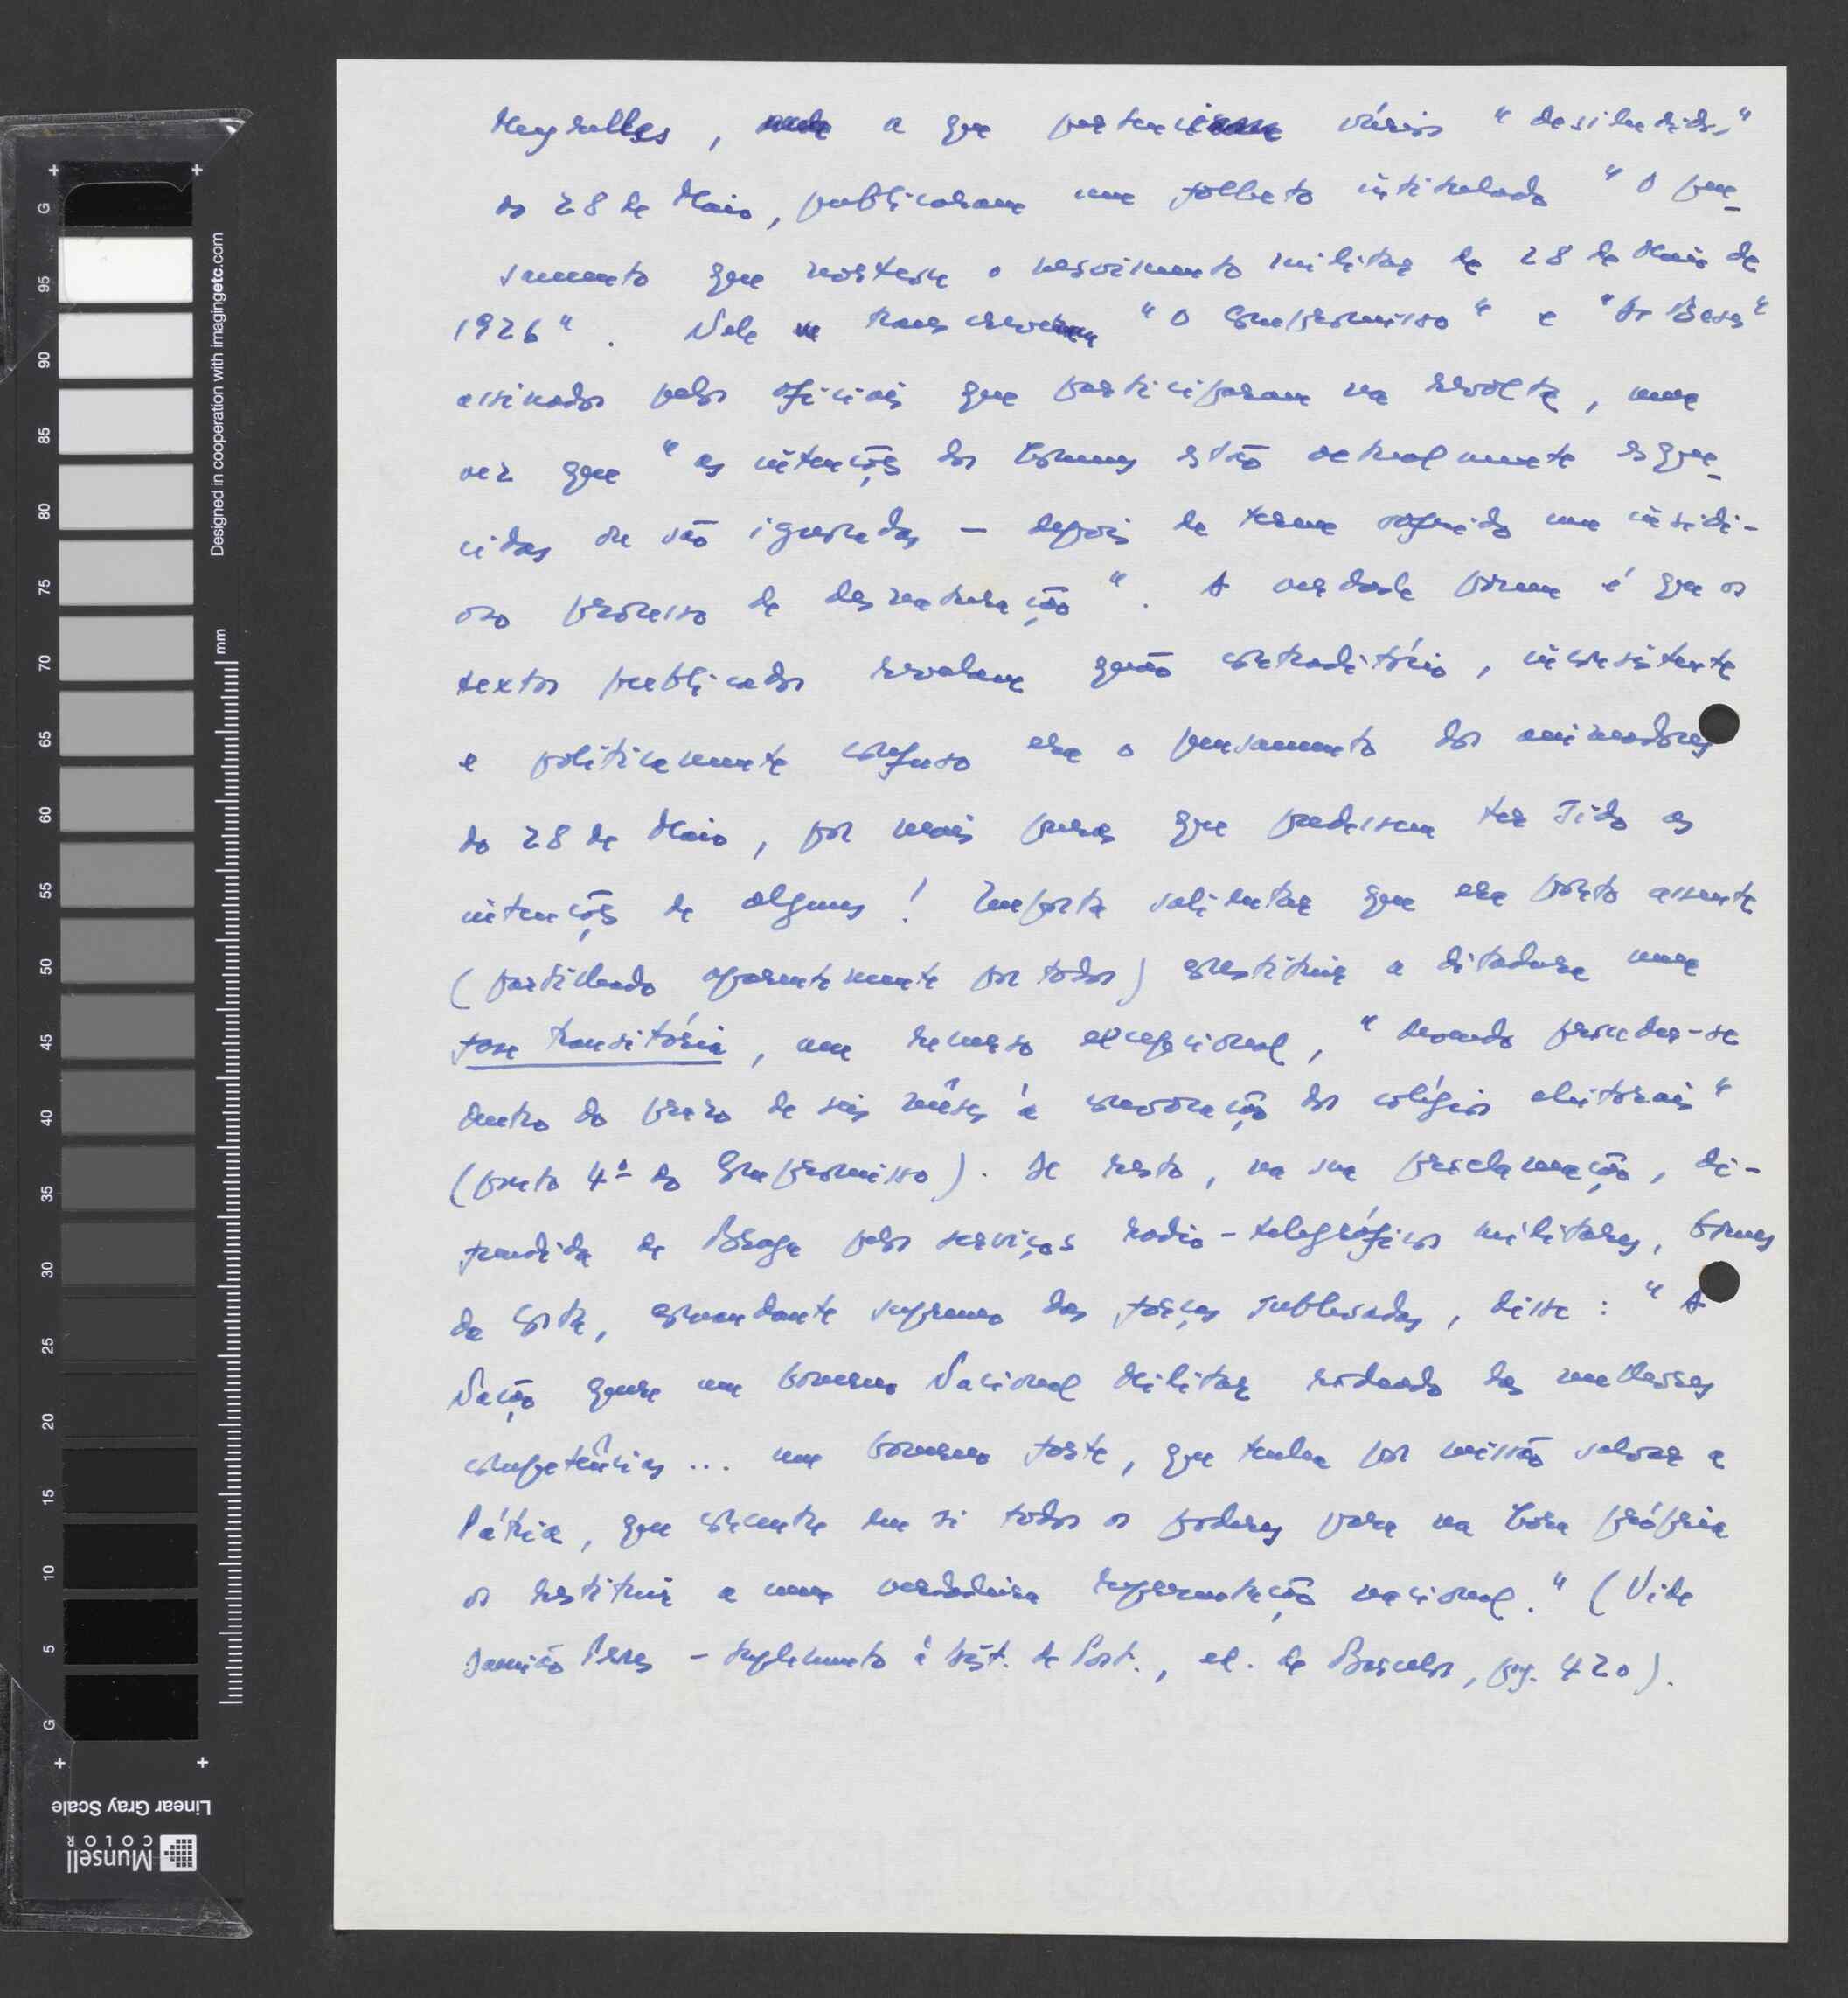 Meyrelles, a que pertenciam vários "desiludidos"
do 28 de Maio, publicaram um folheto intitulado "O pen-
samento que norteou o movimento militar de 28 de Maio de
1926". Nele transcrevem "O Compromisso" e "As Bases"
assinados pelos oficiais que participaram na revolta, uma
vez que "as intenções dos homens estão actualmente esque-
cidas ou são ignoradas — depois de terem sofrido um insidi-
oso processo de desnaturação". A verdade porém é que os
textos publicados revelam quão contraditório, inconsistente
e politicamente confuso era o pensamento dos animadores
do 28 de Maio, por mais puras que pudessem ter sido as
intenções de alguns! Importa salientar que era ponto assente
(partilhado aparentemente por todos) constituir a ditadura uma
fase transitória, um recurso excepcional, "devendo proceder-se
dentro do prazo de seis mêses à convocação dos colégios eleitorais"
(ponto 4º do Compromisso). De resto, na sua proclamação, di-
fundida de Braga pelos serviços radio-telegráficos militares, Gomes
da Costa, comandante supremo das forças sublevadas, disse: "A
Nação quere um Governo Nacional Militar rodeado das melhores
competências... um Governo forte, que tenha por missão salvar a
Pátria, que concentre em si todos os poderes para na hora própria
os restituir a uma verdadeira representação nacional." (Vide
Damião Peres - Suplemento à Hist. de Port., ed. de Barcelos, pg. 420).
Designed in cooperation with imagingetc.com
mm
G
95
90
85
80
75
70
65
60
55
50
45
40
35
30
25
20
15
10
5
G
Linear Gray Scale
Munsell
COLOR